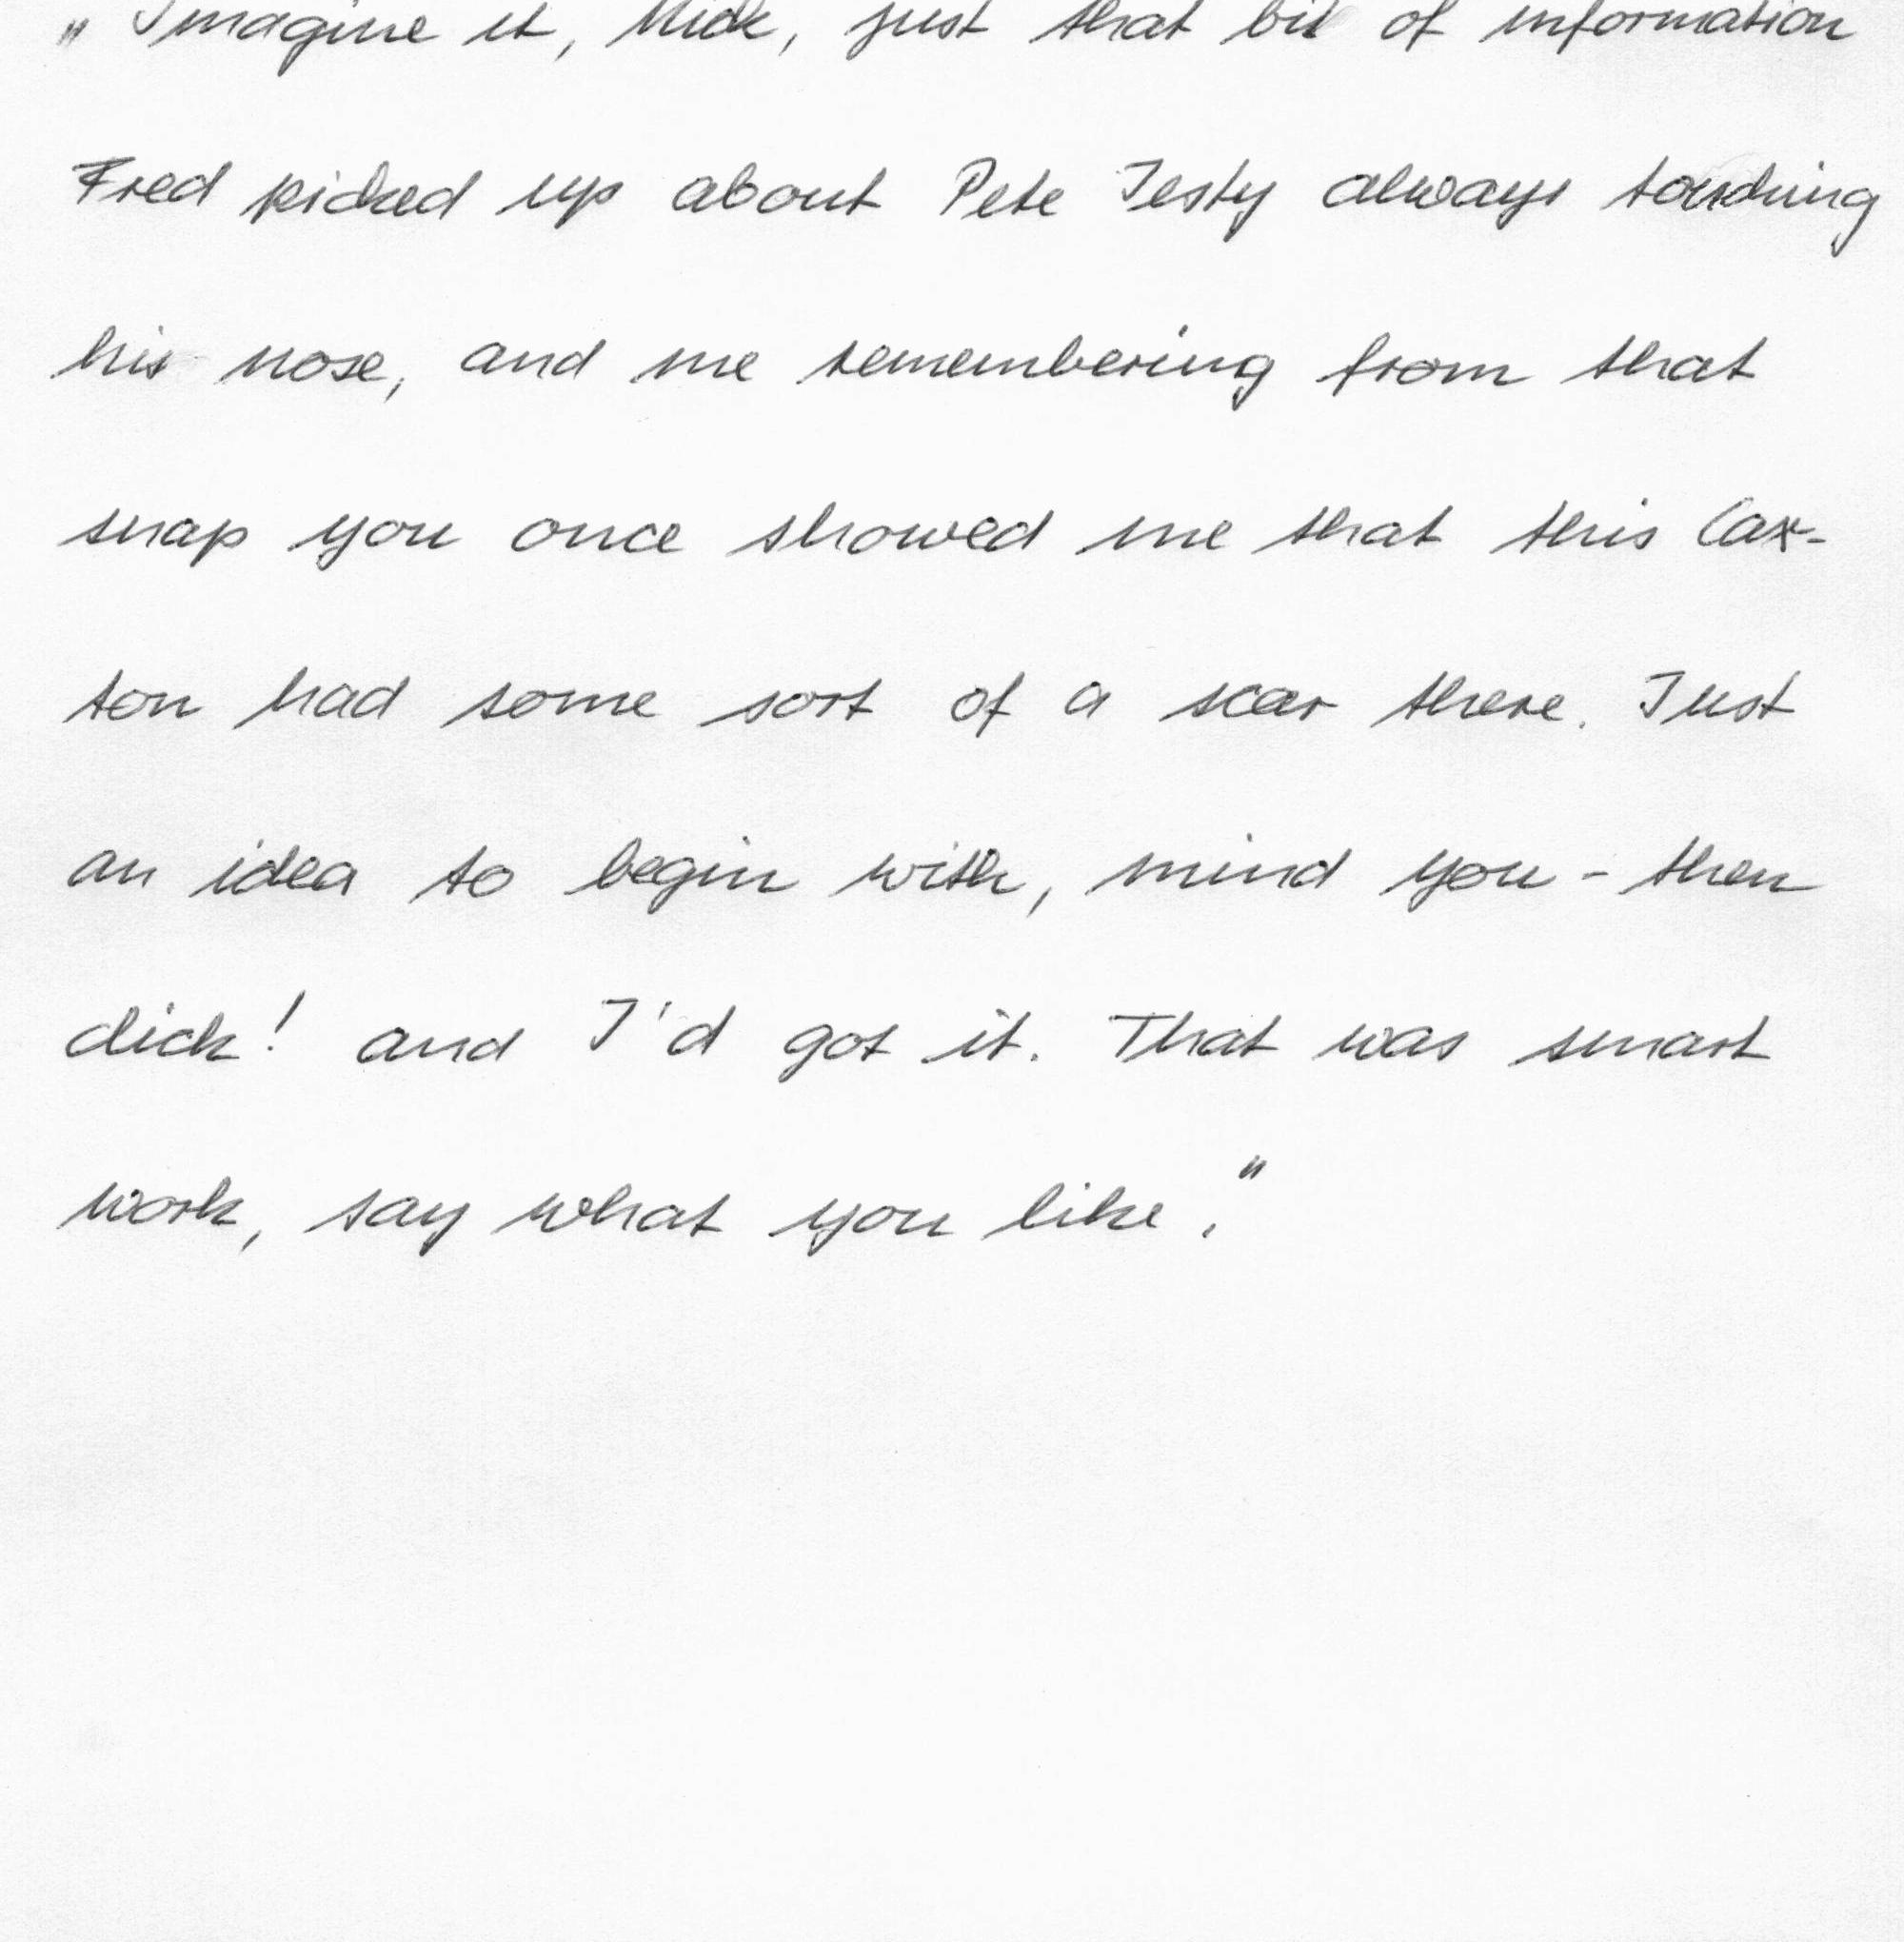 „Imagine it, Mick, just that bit of information
Fred picked up about Pete Testy always touching
his nose, and me remembering from that
snap you once showed me that this Cax-
ton had some sort of a scar there. Just
an idea to begin with, mind you - then
click! and I'd got it. That was smart
work, say what you like."